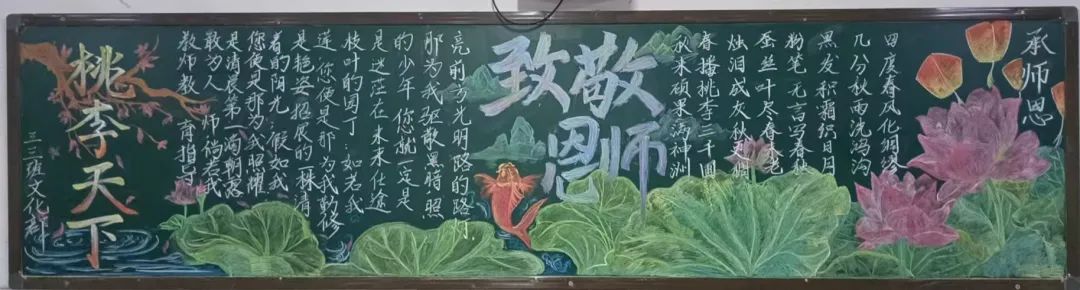 承师恩
四度春风化绸缪
几分秋雨洗鸿沟
黑发积霜织日月
粉笔无言写春秋
蚕丝叶尽春未老
烛泪成灰秋更稠
春播桃李三千圃
秋来硕果满神洲
致敬
恩师
桃李天下
教师教育指导
敢为人师,倘若我
是清晨第一滴朝露
您便是那为我照耀
着的阳光,假如我
是艳姿招展的一株清
莲,您便是那为我勤修
枝叶的园丁;如若我
是迷茫在未来仕途
的少年,您就一定是
那为我驱散黑暗,照
亮前方光明路的路灯.
三三班文化